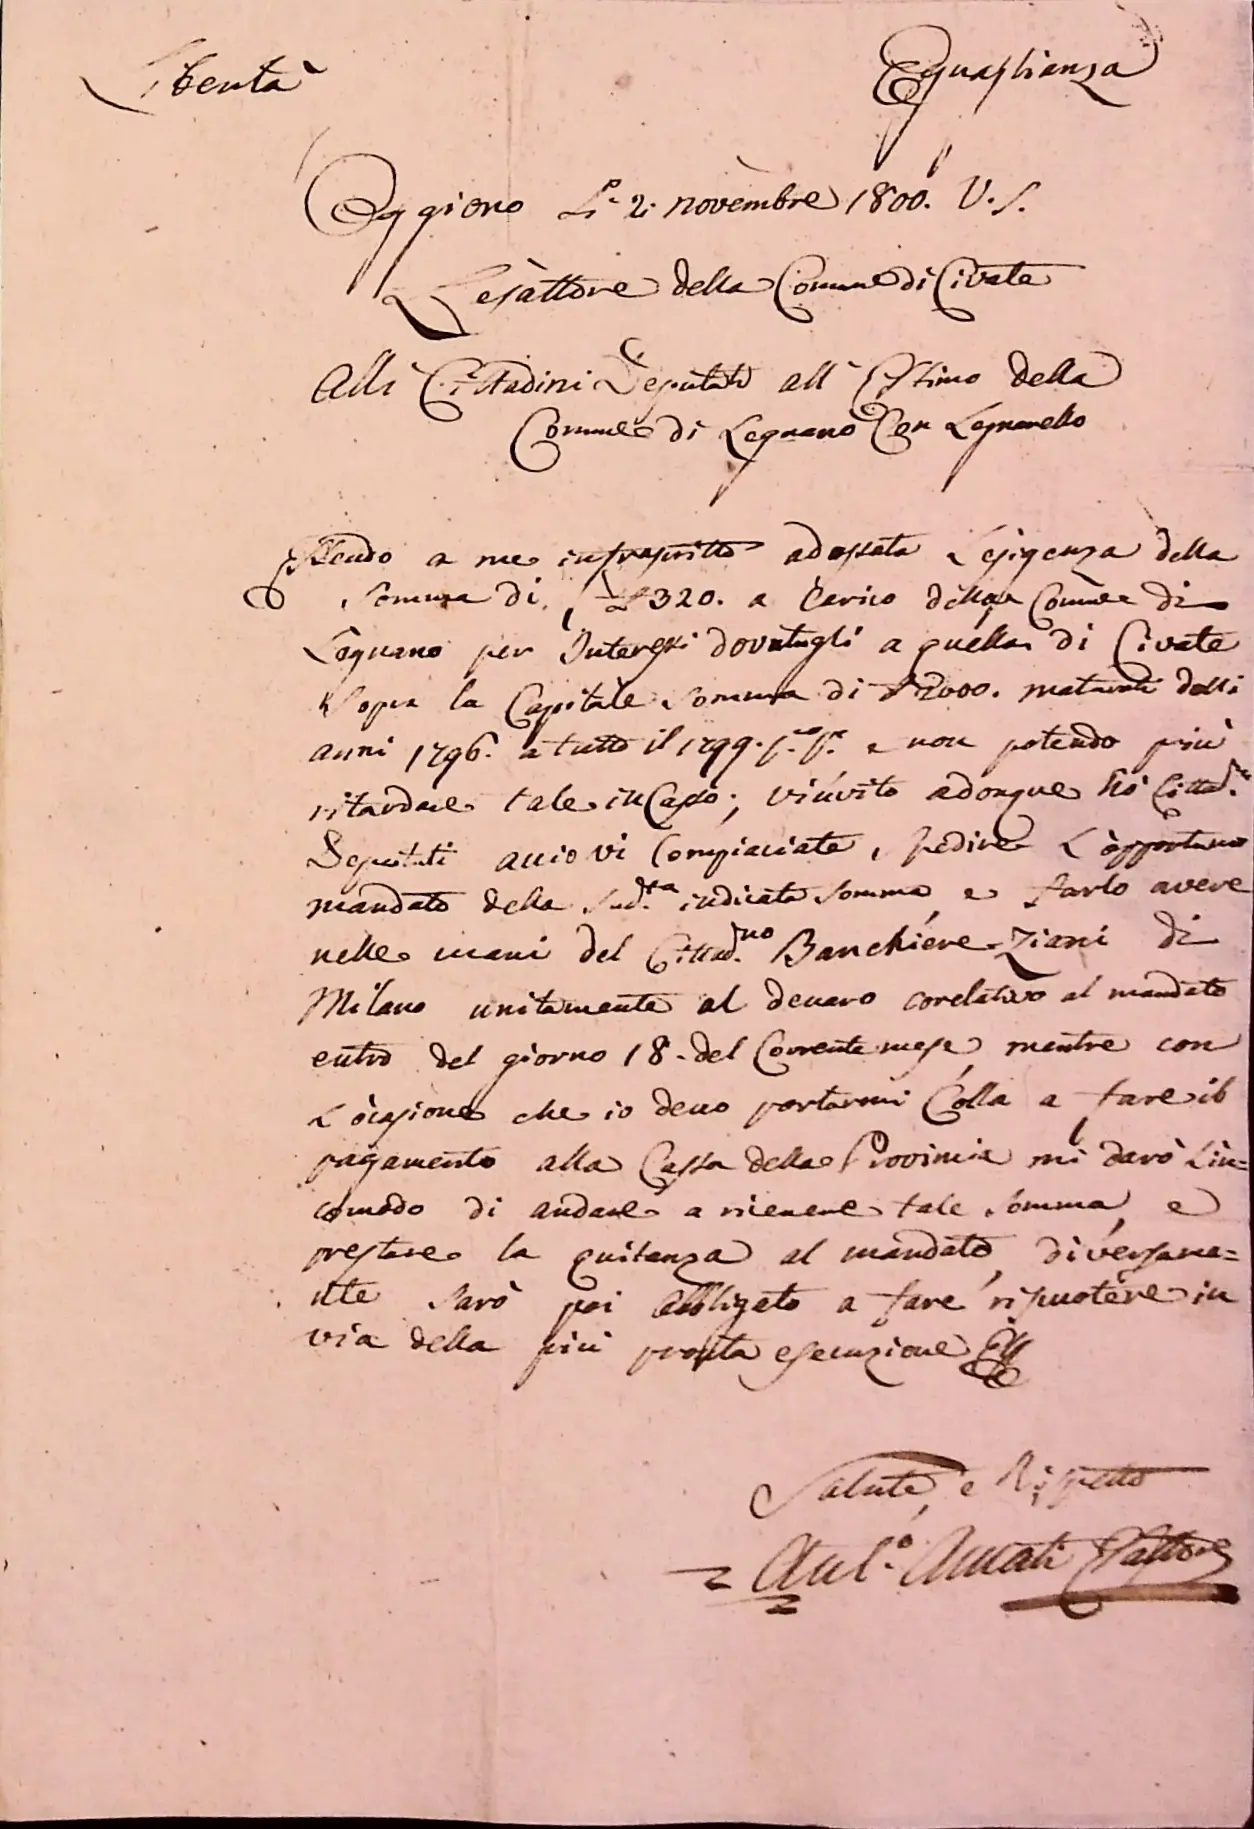 Libertà Eguaglianza
Oggiono Li 2. novembre 1800. V. S.
L'esattore della Comune di Civate
Alli Cittadini Deputati all' Estimo della
Comune di Legnano Con Legnarello
Essendo a me infrascritto adossata L'esigenza della
Somma di £ 320. a Carico della Comune di
Legnano per Interessi dovutegli a quella di Civate
Sopra la Capitale Somma di £ 2000. maturati delli
anni 1796. a tutto il 1799. e non potendo più
ritardare tale inCasso; v'invito adonque
Deputati acciò vi Compiaciate, spedire L'opportuno
mandato della Sud.ta indicata Somma, e farlo avere
nelle mani del Cittad.no Banchiere Ziani di
Milano unitamente al denaro corelativo al mandato
entro del giorno 18. del Corrente mese, mentre con
L'ocasione che io devo portarmi Colla a fare il
pagamento alla Cassa della Provincia mi darò L'in=
comodo di andare a ricevere tale Somma, e
prestare la quitanza al mandato, diversame=
nte Sarò poi obbligato a fare riscuotere in
via della più pronta esecuzione
Salute, e Rispetto
Ant.o Amati Esattore